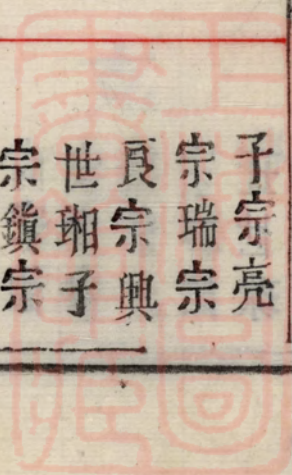 子宗亮
宗瑞宗
良宗興
世瑚子
宗鎮宗